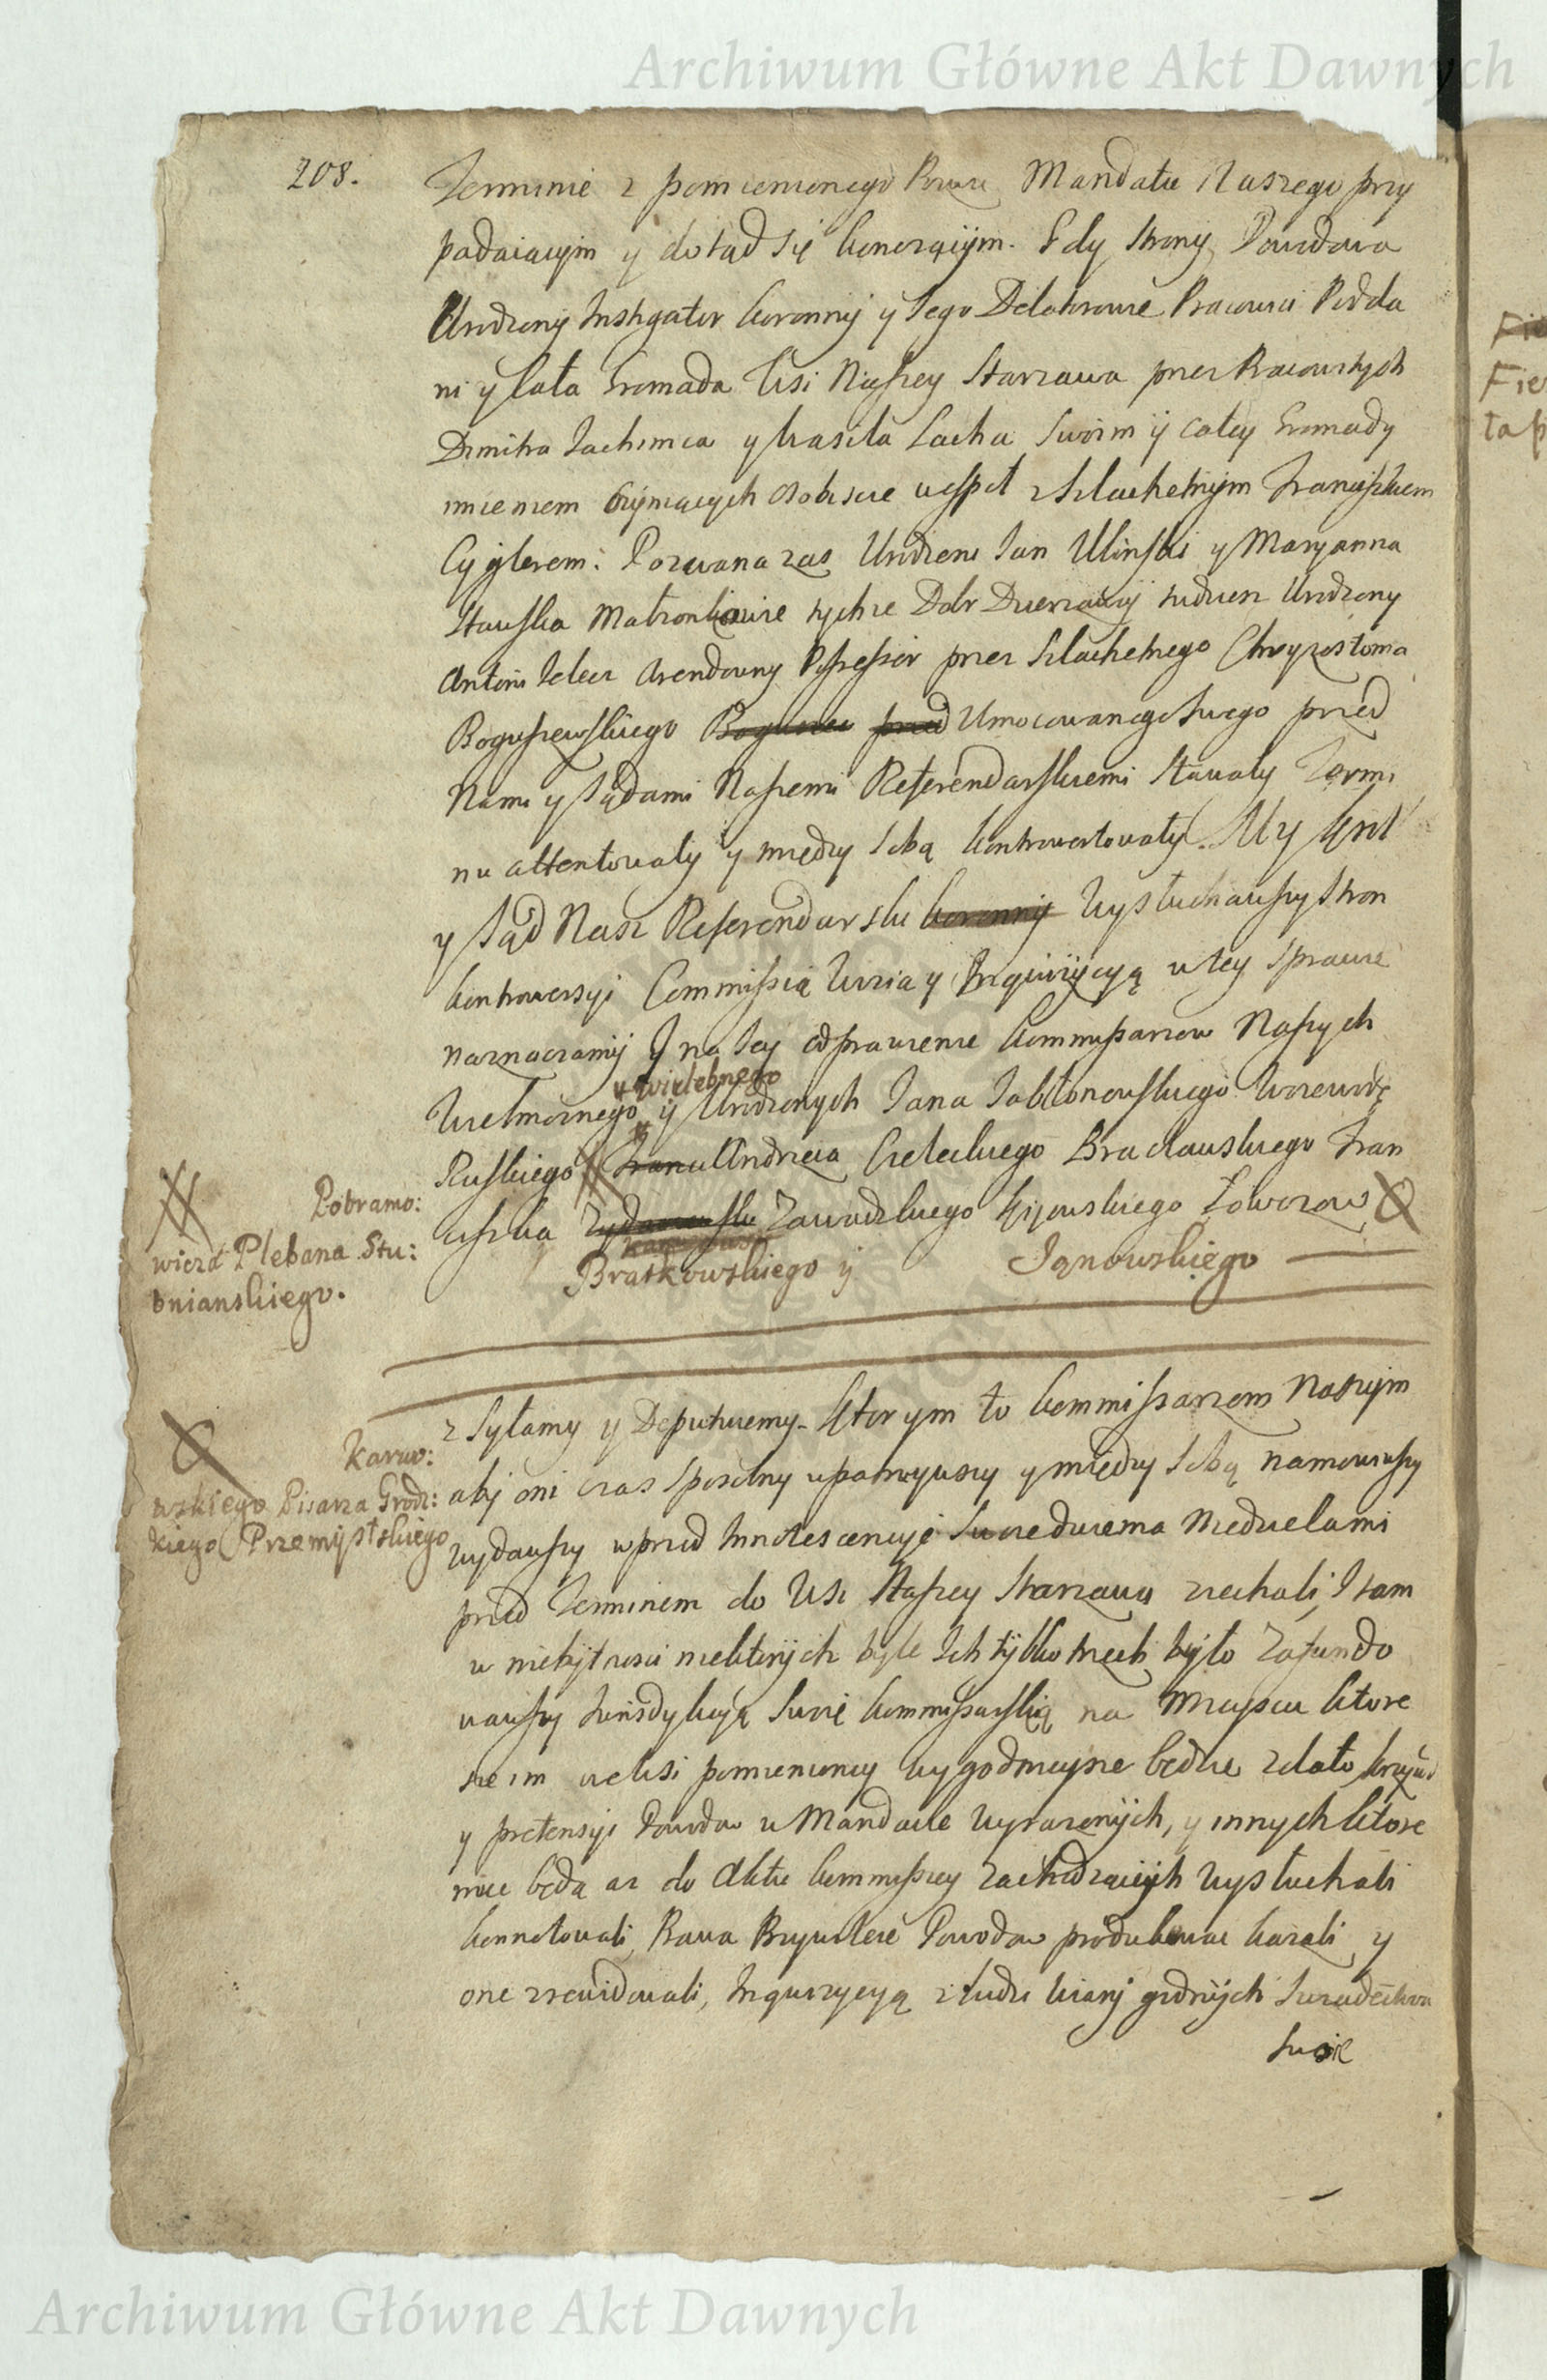 Archiwum Główne Akt Dawnych
208.
Terminie z pomienionego Pozwu Mandatu Naszego przy
padaiącym y dotąd się konczącym. Gdy Strony Powodowa
Urodzony Instygator Koronny y Jego Delatorowie Pracowici Podda
ni y Cała Gromada Wsi Naszey Starzawa przez Pracowitych
Dmitra Jachimca y Wasila Lacha Swoim y całey Gromady
imieniem czyniących osobiscie wespoł z Szlachetnym Franciszkiem
Cyglerem: Pozwana zas Urodzeni Jan Ulinski y Maryanna
Małzonkowie tychze Dobr Dzierzawcy tudziesz Urodzony
Antoni Arendowny Possessor przez Szlachetnego Chryzostoma
Boguszewskiego Umocowanego Swego przed
Nami y Sądami Naszemi Referendarskiemi Stawały Termi
nu attentowały y między Sobą kontrowertowały. My Krol
y Sąd Nasz Referendarski Koronny Wysłuchawszy Stron
kontrowersyi Commissią Wizią y Inquizycyą w tey Sprawie
naznaczamy y na tey odprawienie Kommissarzow Naszych
Wielmoznego y Urodzonych Jana Jabłonowskiego Woiewodę
Wielebnego
Ruskiego Andrzeia Cieleckiego Bracławskiego Fran
ciszka Zawadzkiego Kijowskiego Łowczow
Bratkowskiego y Janowskiego
Pobramo:
wicza Plebana Stu:
bnianskiego.
zsyłamy y Deputuiemy. Ktorym to Kommissarzom Naszym
aby oni czas sposobny upatrzywszy y między Sobą namowiwszy
wydawszy wprzod Innotescencyę Swoie dwiema Niedzielami
przed Terminem do Wsi Naszey Starzawa ziechali, I tam
w niebytnosci niektorych byle Ich tylko trzech było Zafundo
wawszy Jurisdykcyą Swoię Kommissarską na Mieyscu ktore
sie im we Wsi pomienioney wygodnieysze będzie zdało krzywd
y pretensyi Powodow w Mandacie wyrazonych, y innych ktore
miec będą az do Aktu Kommissyey zachodzących wysłuchali
konnotowali, Prawa Przywileie Powodow produkowac kazali y
one zrewidowali, Inquizycyą z ludzi wiary godnych Swiadectwa
Swoie
Karwo:
wskiego Pisarza Grodz:
kiego Przemyslskiego
Fie
Archiwum Główne Akt Dawnych